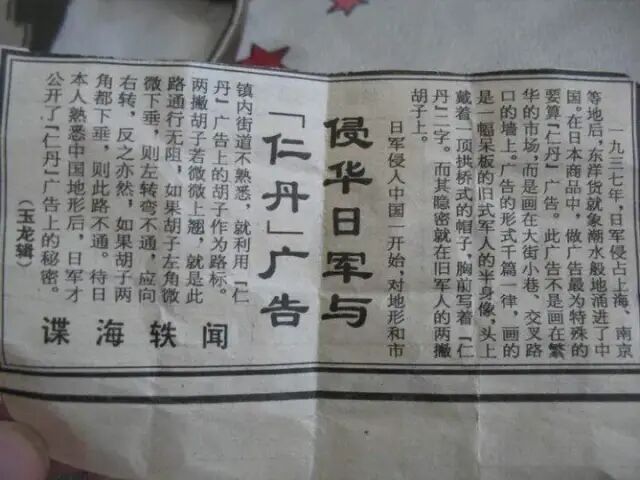 一九三七年，日军侵占上海、南京
等地后，东洋货就象潮水般地涌进了中
国。在日本商品中，做广告最为特殊的
要算「仁丹」广告。此广告不是画在繁
华的市场，而是画在大街小巷、交叉路
口的墙上。广告的形式千篇一律，画的
是一幅呆板的旧式军人的半身像，头上
戴着一顶拱桥式的帽子，胸前写着「仁
丹」二字。而其隐密就在旧军人的两撇
胡子上。
日军侵入中国一开始，对地形和市
侵华日军与
「仁丹」广告
镇内街道不熟悉，就利用「仁
丹」广告上的胡子作为路标。
两撇胡子若微微上翘，就是此
路通行无阻，如果胡子左角微
微下垂，则左转弯不通，应向
右转，反之亦然，如果胡子两
角都下垂，则此路不通。待日
本人熟悉中国地形后，日军才
公开了「仁丹」广告上的秘密。
（玉龙辑）
谍海轶闻